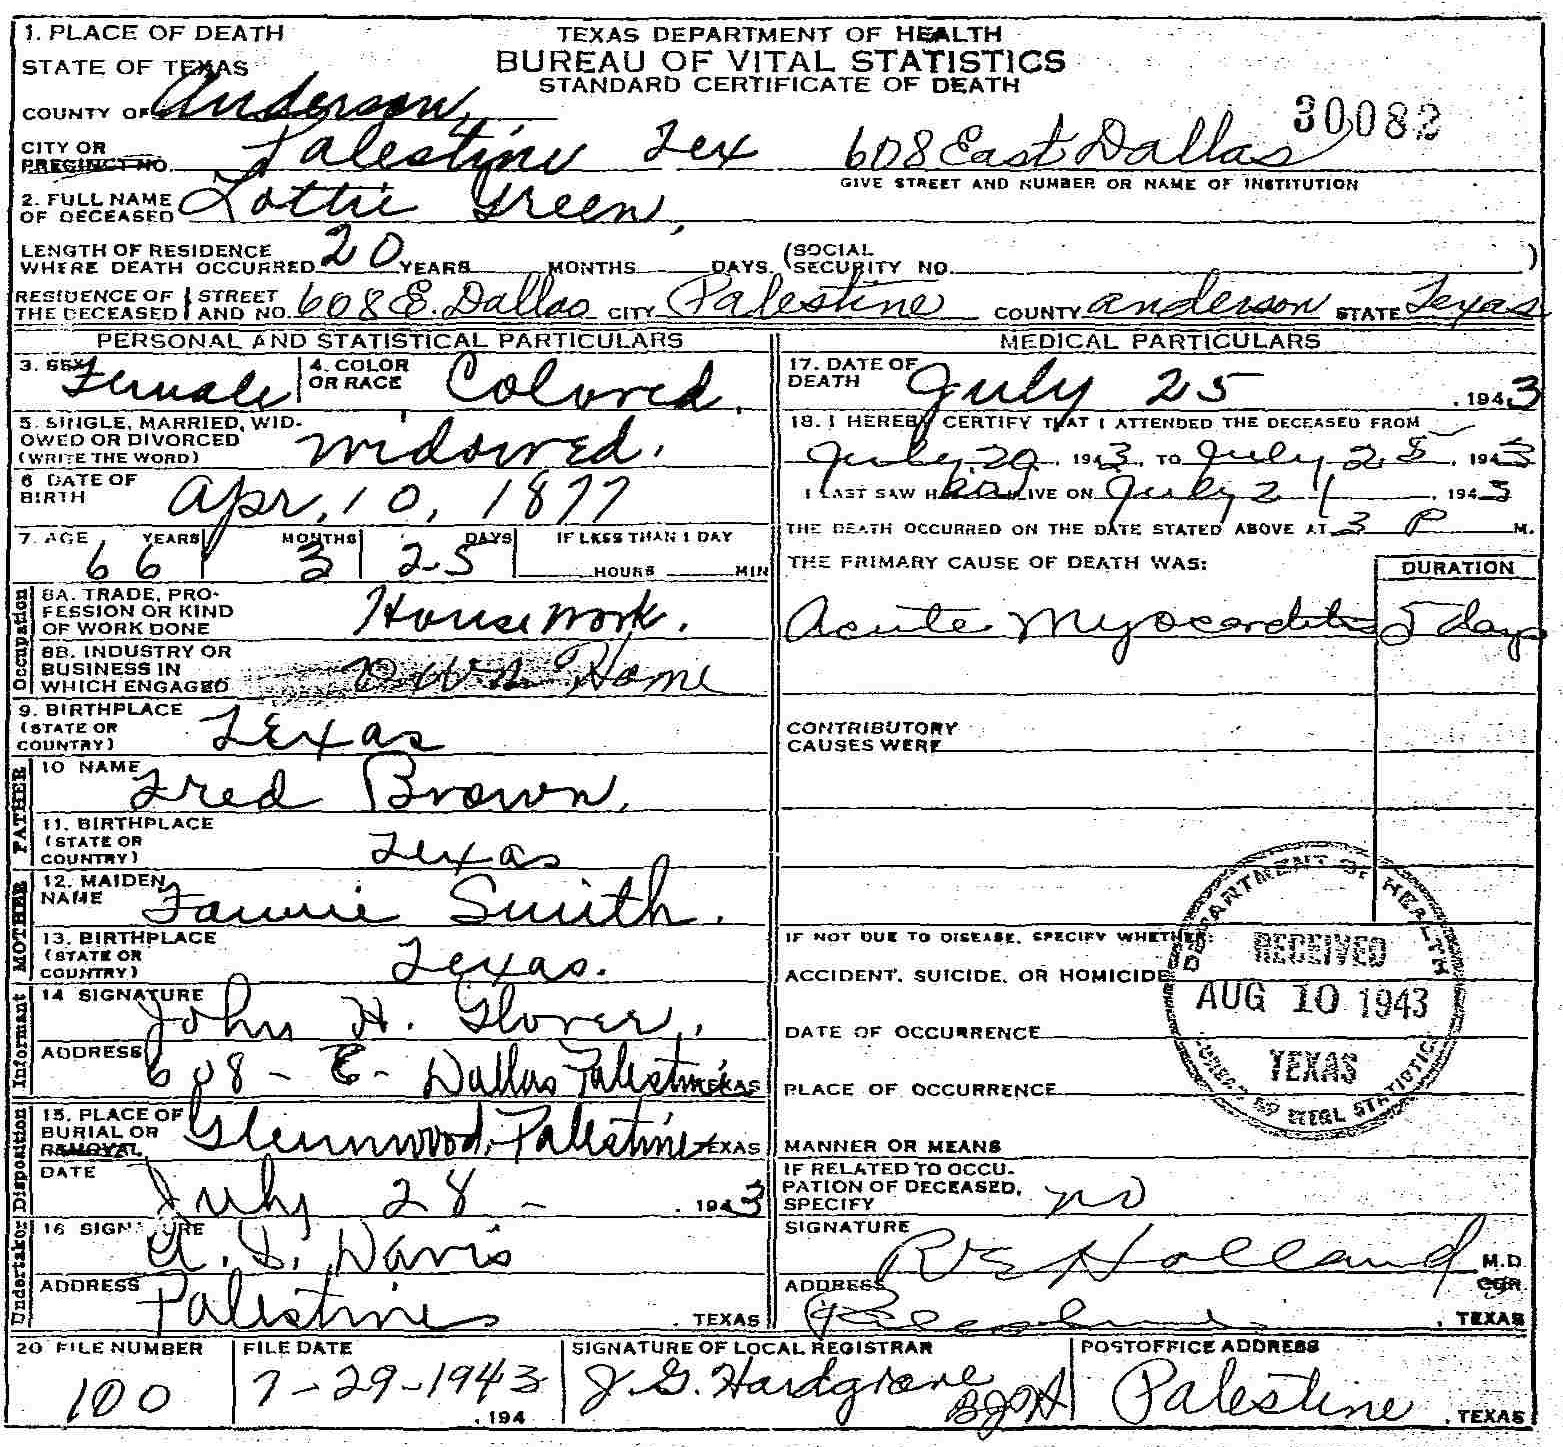 1. PLACE OF DEATH
STATE OF TEXAS
TEXAS DEPARTMENT OF HEALTH
BUREAU OF VITAL STATISTICS
STANDARD CERTIFICATE OF DEATH
COUNTY OF Anderson,
30082
CITY OR PRECINCT NO. Palestine Tex 608 East Dallas
GIVE STREET AND NUMBER OR NAME OF INSTITUTION
2. FULL NAME OF DECEASED Lottie Green,
LENGTH OF RESIDENCE WHERE DEATH OCCURRED 20 YEARS MONTHS DAYS (SOCIAL SECURITY NO. )
RESIDENCE OF THE DECEASED STREET AND NO. 608 E. Dallas CITY Palestine COUNTY Anderson STATE Texas
PERSONAL AND STATISTICAL PARTICULARS
3. SEX Female 4. COLOR OR RACE Colored.
5. SINGLE, MARRIED, WIDOWED OR DIVORCED (WRITE THE WORD) Widowed.
6 DATE OF BIRTH Apr. 10, 1877
7. AGE YEARS 66 MONTHS 3 DAYS 25 IF LESS THAN 1 DAY HOURS MIN
Occupation
8A. TRADE, PROFESSION OR KIND OF WORK DONE House work.
8B. INDUSTRY OR BUSINESS IN WHICH ENGAGED Own Home
9. BIRTHPLACE (STATE OR COUNTRY) Texas
FATHER
10 NAME Fred Brown.
11. BIRTHPLACE (STATE OR COUNTRY) Texas
MOTHER
12. MAIDEN NAME Fannie Smith.
13. BIRTHPLACE (STATE OR COUNTRY) Texas.
Informant
14 SIGNATURE John H. Glover,
ADDRESS 608 - E - Dallas Palestine TEXAS
Disposition
15. PLACE OF BURIAL OR REMOVAL Glennwood, Palestine TEXAS
DATE July 28 - , 1943
Undertaker
16 SIGNATURE A. D. Davis
ADDRESS Palestine , TEXAS
MEDICAL PARTICULARS
17. DATE OF DEATH July 25 , 1943
18. I HEREBY CERTIFY THAT I ATTENDED THE DECEASED FROM
July 20, 1943, TO July 25, 1943
I LAST SAW H ALIVE ON July 21 , 1943
THE DEATH OCCURRED ON THE DATE STATED ABOVE AT 3 P M.
THE PRIMARY CAUSE OF DEATH WAS: DURATION
Acute Myocarditis 5 days
CONTRIBUTORY CAUSES WERE
IF NOT DUE TO DISEASE, SPECIFY WHETHER:
ACCIDENT, SUICIDE, OR HOMICIDE
DATE OF OCCURRENCE
PLACE OF OCCURRENCE
MANNER OR MEANS
DEPARTMENT OF HEALTH
RECEIVED
AUG 10 1943
TEXAS
IF RELATED TO OCCUPATION OF DECEASED, SPECIFY no
SIGNATURE Holland M.D.
ADDRESS , TEXAS
20 FILE NUMBER 100
FILE DATE 7-29-1943 , 194
SIGNATURE OF LOCAL REGISTRAR J. G. Hardgrave
POSTOFFICE ADDRESS Palestine , TEXAS